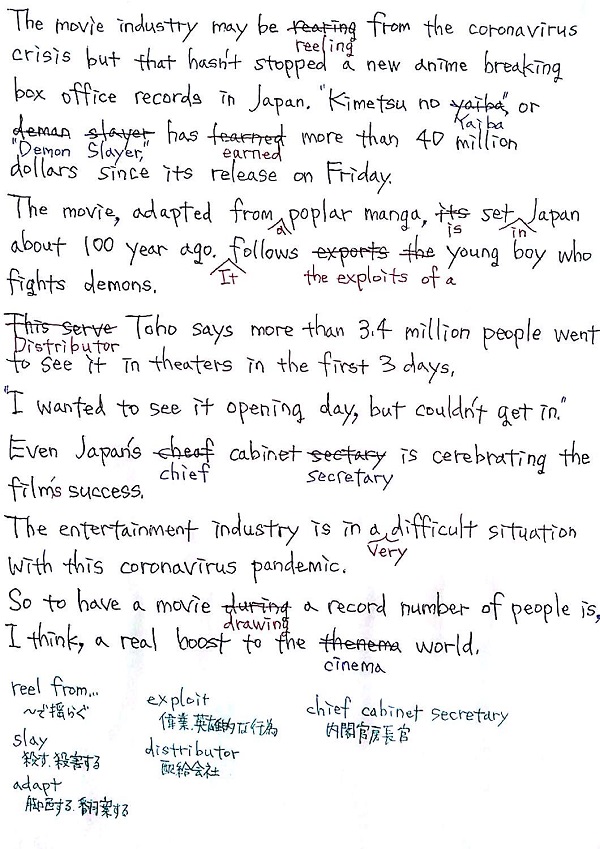 The movie industry may be rearing from the coronavirus
reeling
crisis but that hasn't stopped a new anime breaking
box office records in Japan. "Kimetsu no yaiba", or
Yaiba
deman slayer has fearned more than 40 million
"Demon Slayer," earned
dollars since its release on Friday.
The movie, adapted from poplar manga, its set Japan
a is in
about 100 year ago. follows exports the young boy who
It the exploits of a
fights demons.
This serve Toho says more than 3.4 million people went
Distributor
to see it in theaters in the first 3 days.
"I wanted to see it opening day, but couldn't get in."
Even Japan's cheaf cabinet sectary is cerebrating the
chief secretary
film's success.
The entertainment industry is in a difficult situation
very
with this coronavirus pandemic.
So to have a movie during a record number of people is,
drawing
I think, a real boost to the thenema world.
cinema
reel from...
〜で揺らぐ
slay
殺す、殺害する
adapt
脚色する、翻案する
exploit
偉業、英雄的な行為
distributor
配給会社
chief cabinet secretary
内閣官房長官